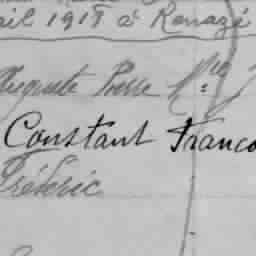 ril 1918 à Renazé
Auguste Pierre Mle
Constant Franço
Fréderic